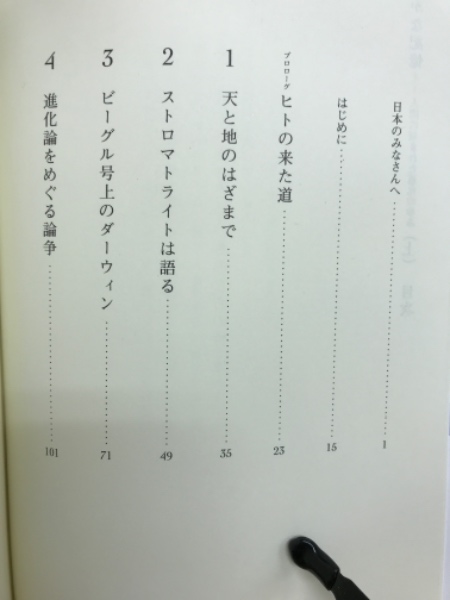 日本のみなさんへ……………………1
はじめに……………………15
プロローグ ヒトの来た道……………………23
1 天と地のはざまで……………………35
2 ストロマトライトは語る……………………49
3 ビーグル号上のダーウィン……………………71
4 進化論をめぐる論争……………………101